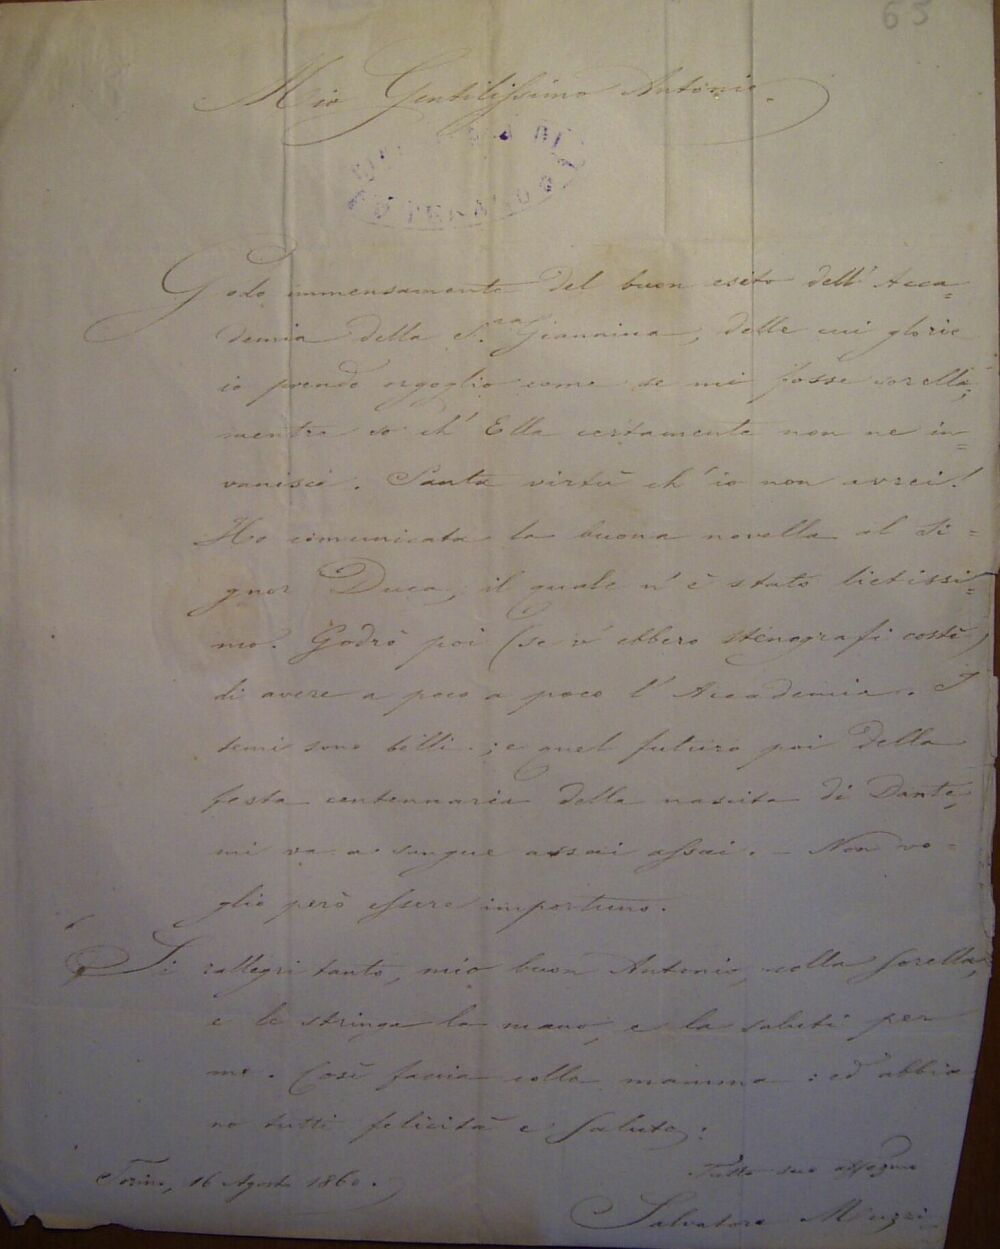 65
Mio Gentilissimo Antonio.
Godo immensamente del buon esito dell' Acca=
demia della S.ra Giannina, delle cui glorie
io prendo orgoglio come se mi fosse sorella,
mentre so ch' Ella certamente non ne in=
vanisce. Santa virtù ch' io non avrei!
Ho comunicata la buona novella al Si=
gnor Duca, il quale n' è stato lietissi=
mo. Godrò poi (se v' ebbero stenografi costì)
di avere a poco a poco l' Accademia. I
temi sono belli; e quel futuro poi della
festa centennaria della nascita di Dante,
mi va a sangue assai assai. – Non vo=
glio però essere importuno.
Si rallegri tanto, mio buon Antonio, colla sorella,
e le stringa la mano, e la saluti per
me. Così faccia colla mamma: ed abbia
no tutti felicità e salute.
Tutto suo affezmo
Torino, 16 Agosto 1860.
Salvatore Muzzi